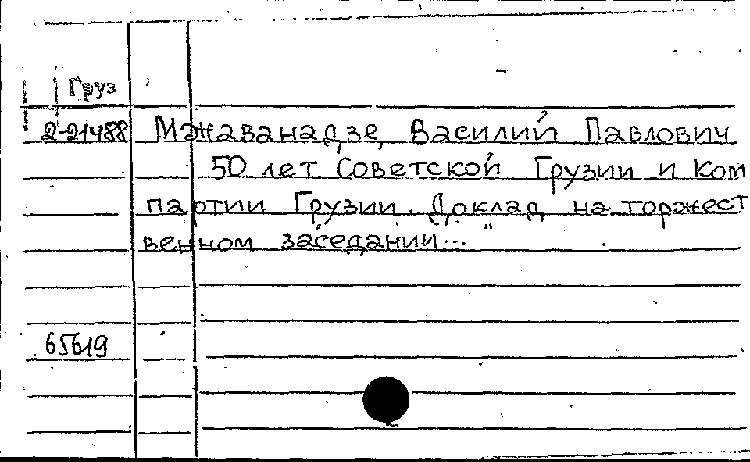 Груз
2-21488 Мжаванадзе, Василий Павлович
50 лет Советской Грузии и Ком
партии Грузии. Доклад на торжест
венном заседании..."
65619